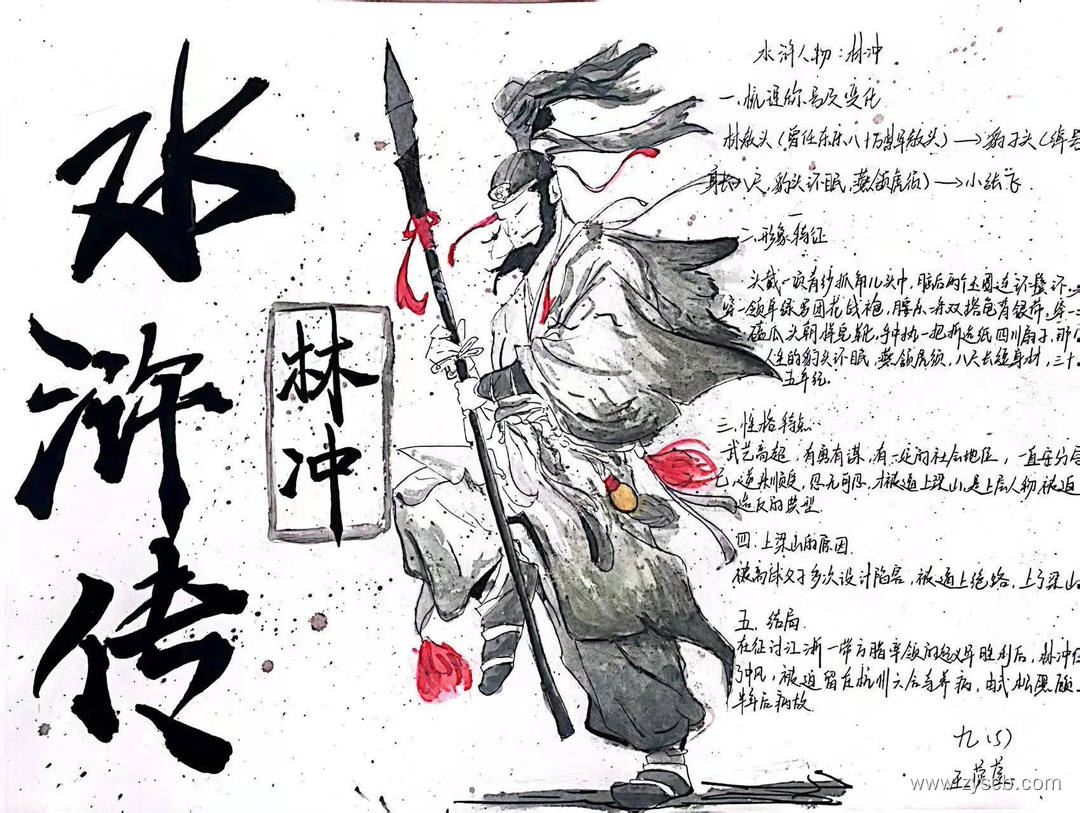 水浒传
林冲
水浒人物：林冲
一.
变化
林教头（曾任东京八十万禁军教头）→豹子头（绰号
身长八尺，豹头环眼，燕颔虎须）→小张飞
二.形象特征
头戴一顶青纱抓角儿头巾，脑后两个白玉圈连珠鬓环，
穿一领单绿罗团花战袍，腰系一条双搭尾龟背银带，穿一
磕瓜头朝样皂靴，手中执一把折迭纸西川扇子，那
人生的豹头环眼，燕颔虎须，八尺长短身材，三十
五年纪
三.性格特点
武艺高超，有勇有谋，有一定的社会地位，一直安分守
己，逆来顺受，忍无可忍，才被逼上梁山，是上层人物被迫
造反的典型
四.上梁山的原因
被高俅父子多次设计陷害，被逼上绝路，上了梁山
五.结局
在征讨江浙一带方腊率领的起义军胜利后，林冲
中风，被迫留在杭州六合寺养病，由武松照顾
半年后病故
九（5）
www.zyseb.com